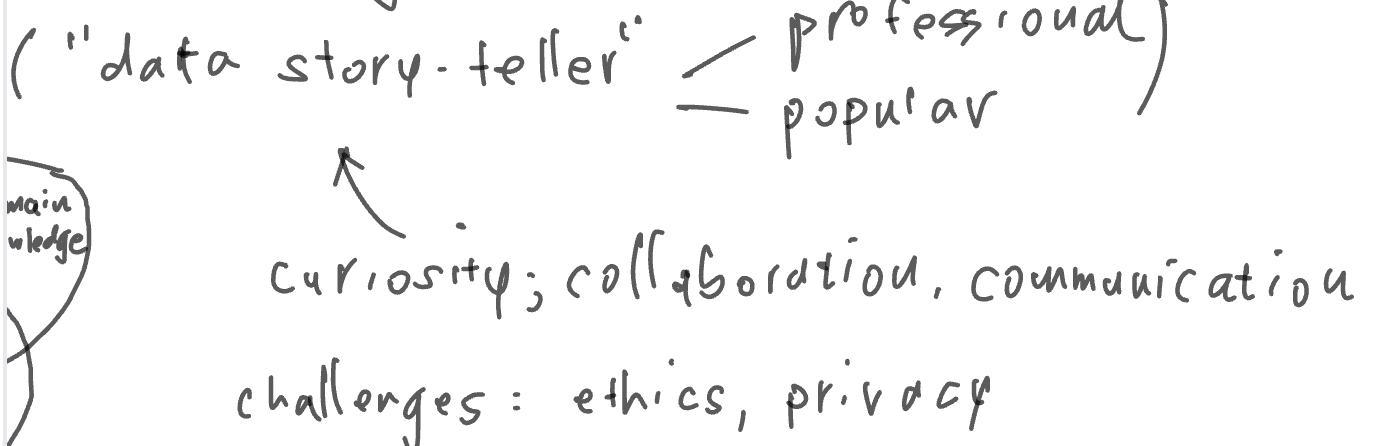 ("data story-teller" professional)
popular
main
wledge
curiosity; collaboration, communication
challenges: ethics, privacy